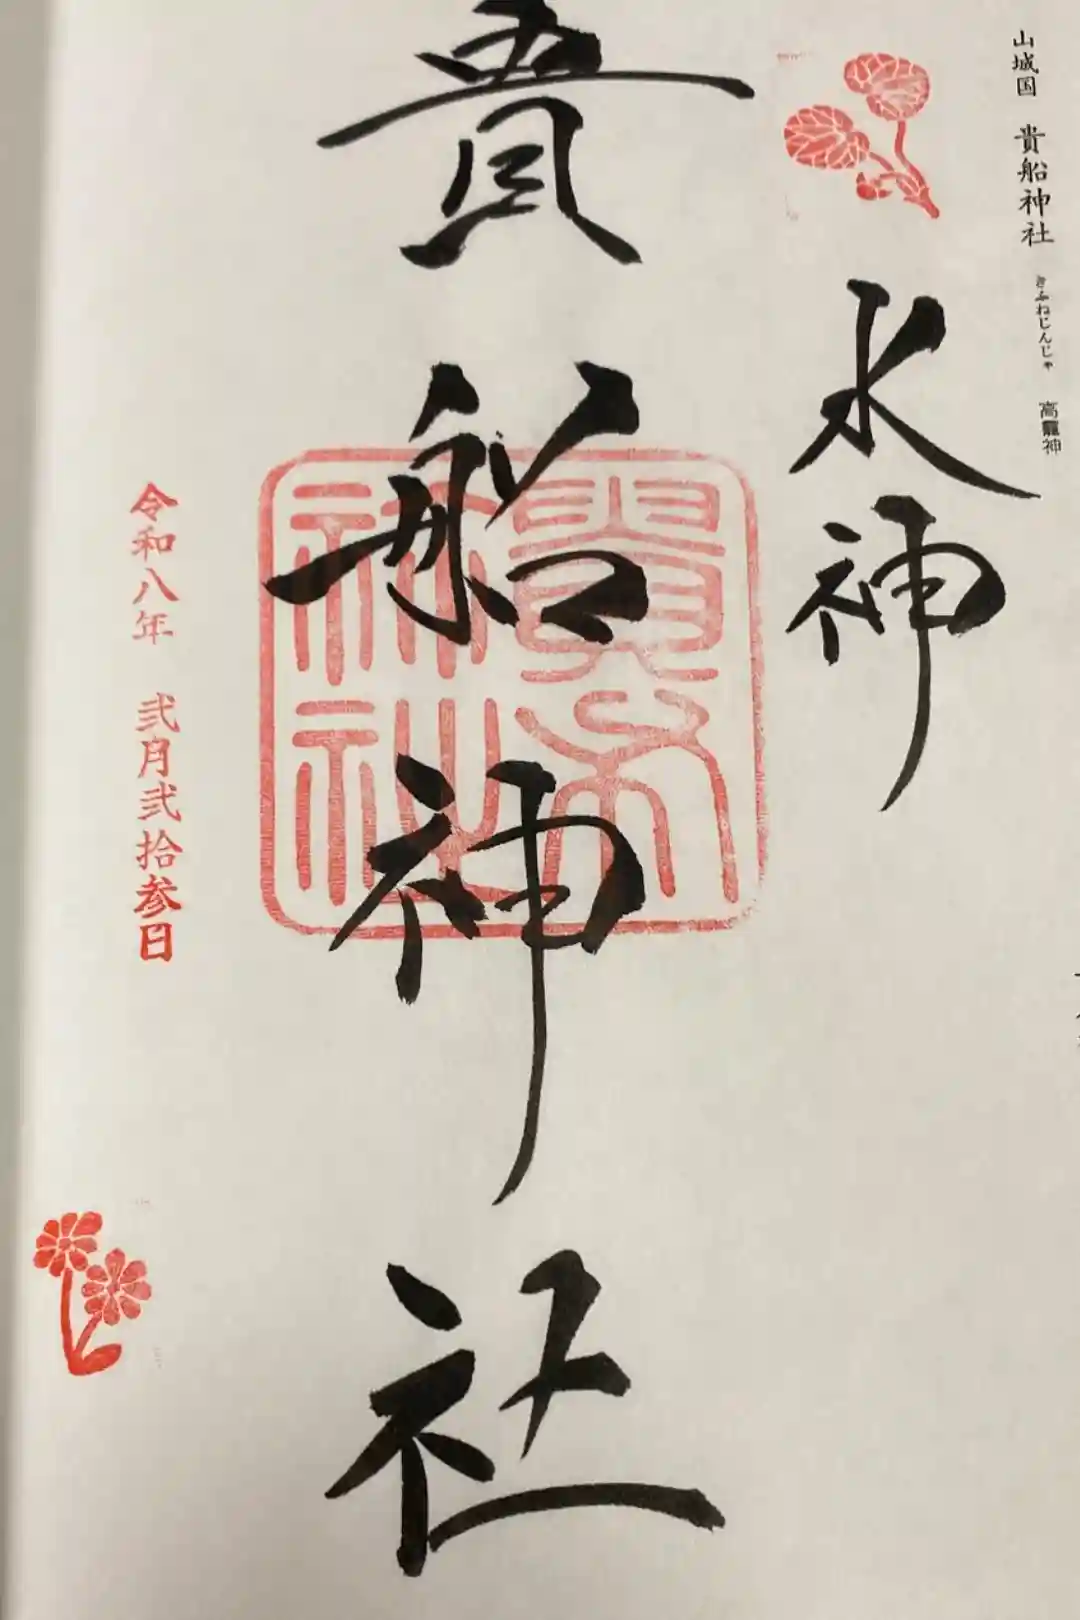 山城国 貴船神社 きふねじんじゃ 高龗神
水神
貴船神社
貴布祢神社
令和八年 弐月弐拾参日